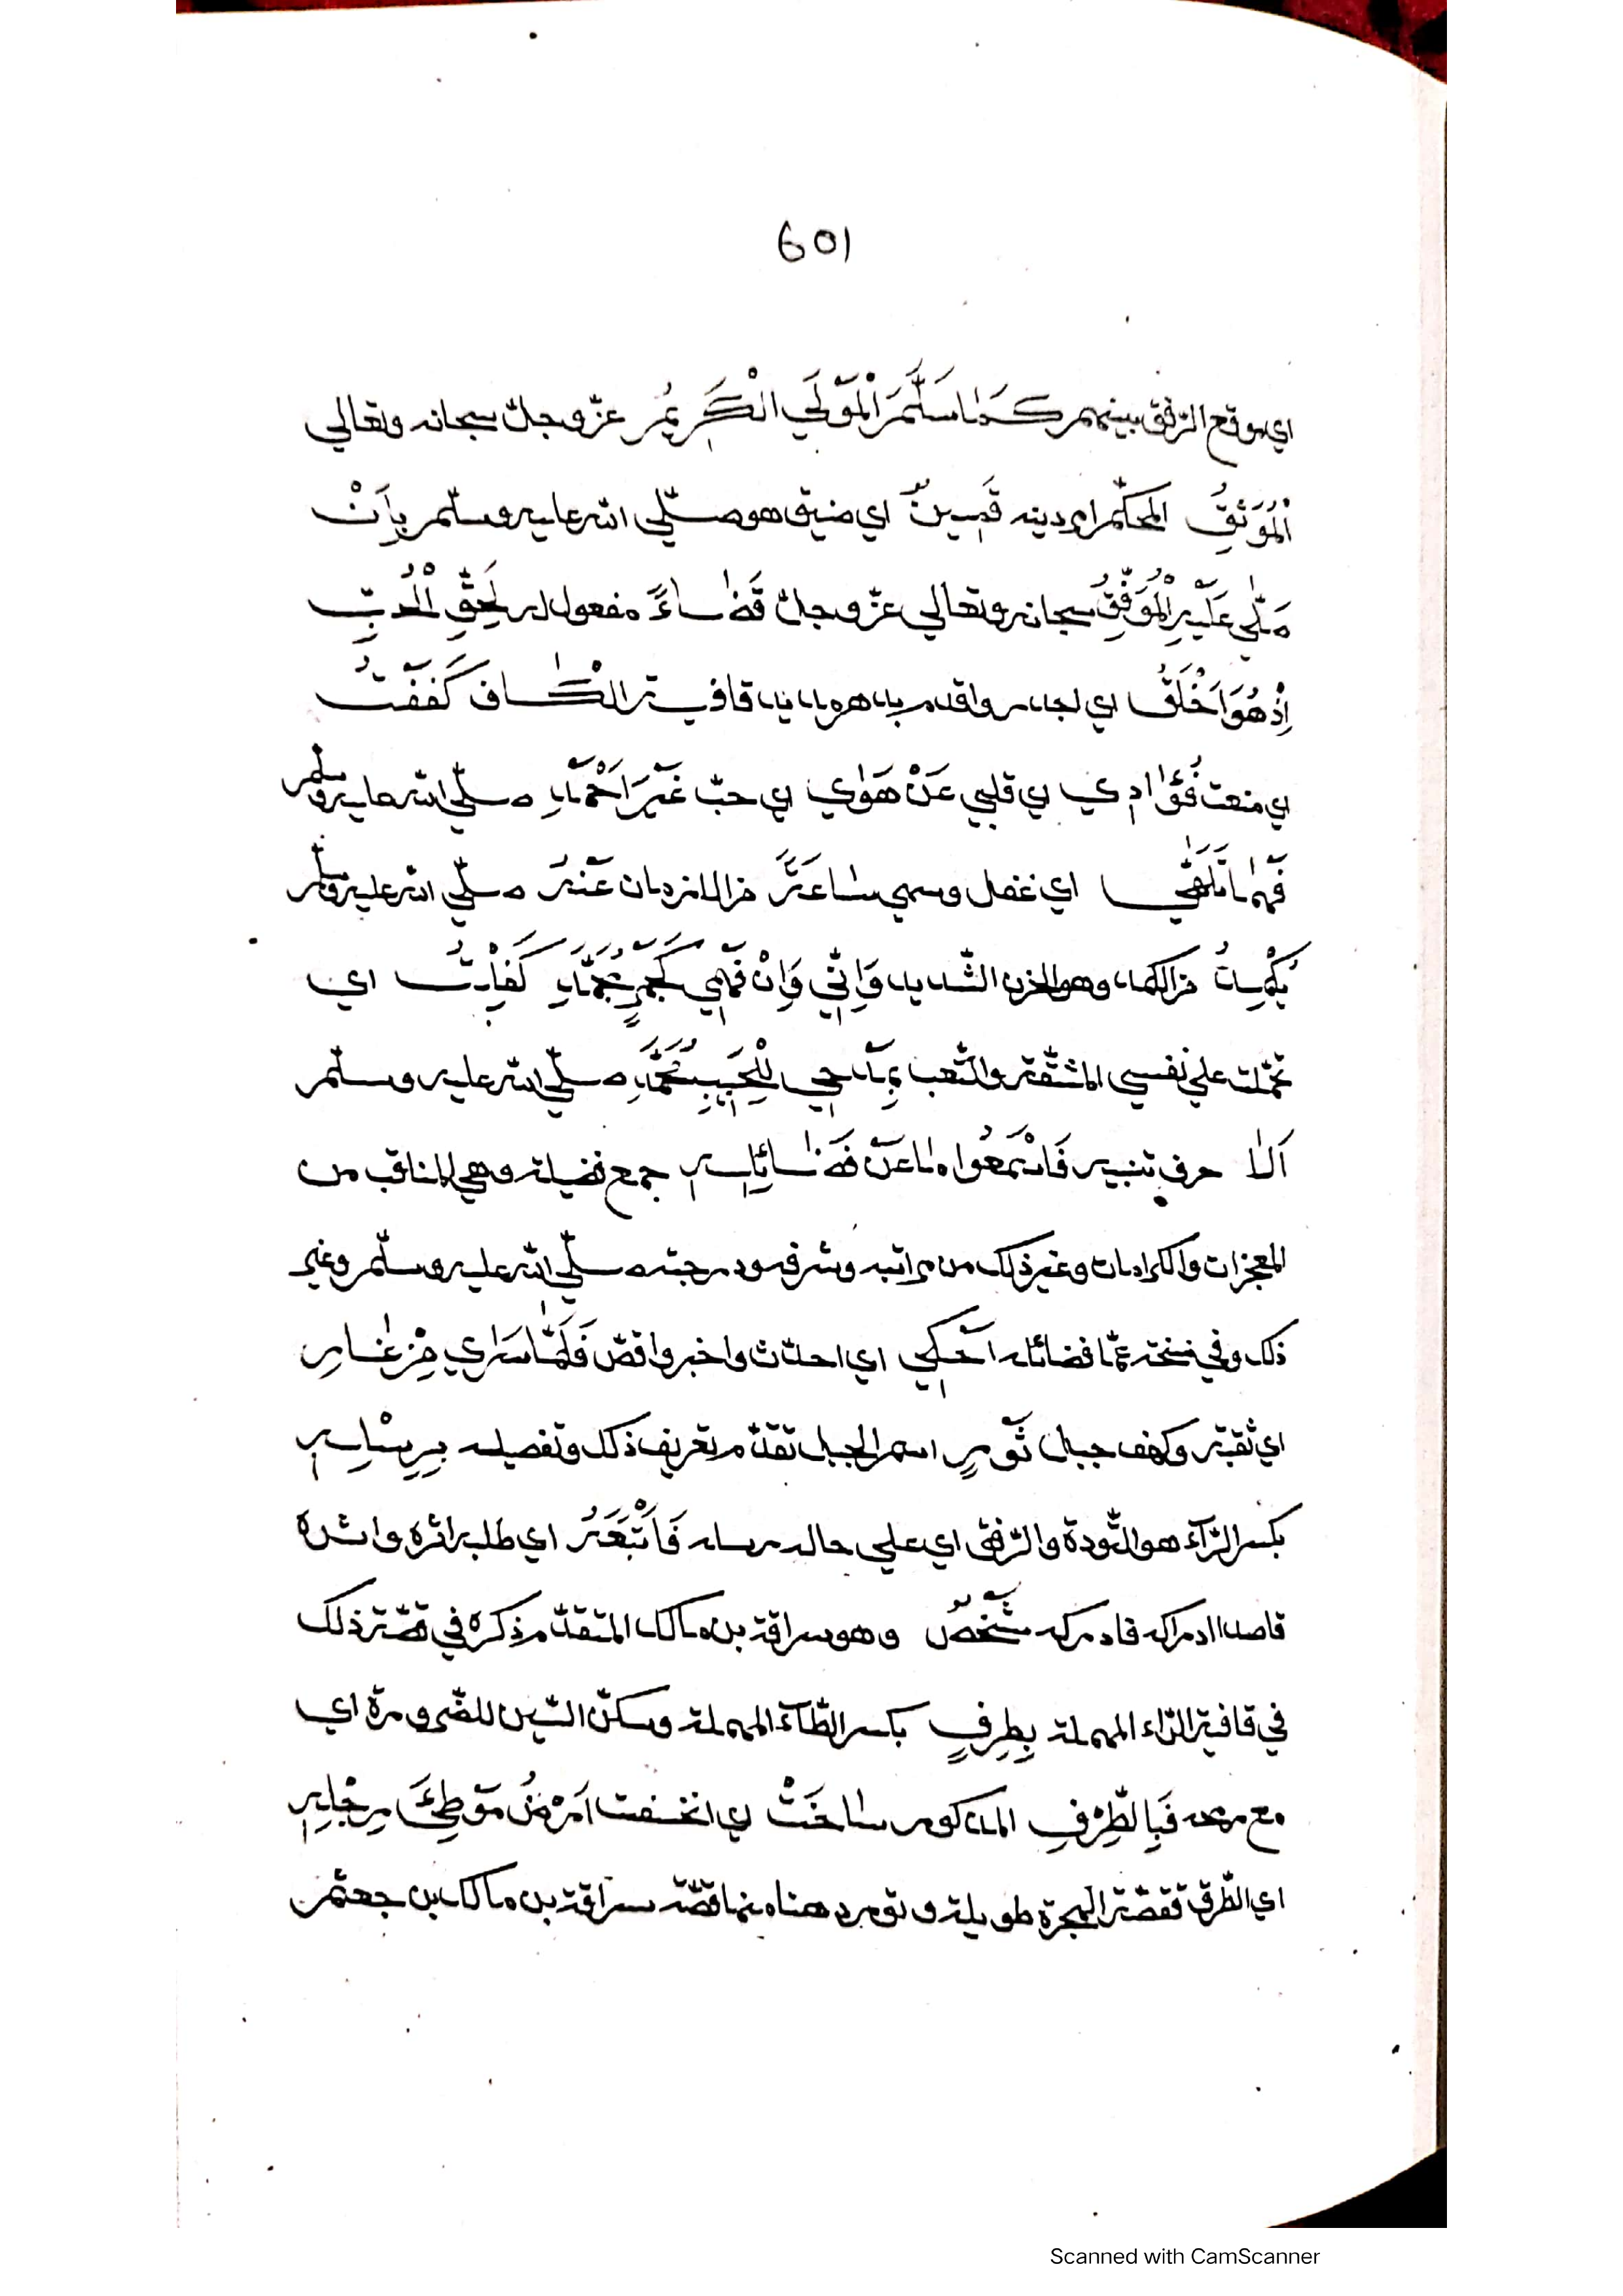 601
اي موقع الرّفق بينهم كَمٰا سَلَّمَ الْمَوْلَي الْكَرِيمُ عزّ وجلّ سبحانه وتعالي
الْمُوَثِّقُ المحكّم امر دينه قَمِينٌ اي حقيق هو صلّي الله عليه وسلّم بِاَنْ
صَلّٰي عَلَيْهِ الْمُوَفِّقُ سبحانه وتعالي عزّ وجلّ قَضٰاءً مفعول له لِحَقِّ الْحُبِّ
اِذْ هُوَ اَخْلَقُ اي اجدر واقدم قافية الْكٰاف كَفَفْتُ
اي منعت فُؤٰادِي اي قلبي عَنْ هَوٰي اي حبّ غَيْرِ اَحْمَدٍ صلّي الله عليه وسلّم
فَمَهْمٰا تَلَهّٰي اي غفل وسهي سٰاعَةً من الازمان عَنْهُ صلّي الله عليه وسلّم
يُكْمَدُ من الكمد وهو الحزن الشّديد وَاِنّي وَاِنْ فَهْمِي كَجُمْرٍ مُجَمَّدٍ كَفَلْتُ اي
تحمّلت علي نفسي المشقّة والتّعب بِمَدْحِي لِلْحَبِيبِ مُحَمَّدٍ صلّي الله عليه وسلّم
اَلٰا حرف تنبيه فَاسْمَعُوا مٰا عَنْ فَضٰائِلِهِ جمع فضيلة وهي المناقب من
المعجزات والكرامات وغير ذلك من مراتبه وشرفه ودرجته صلّي الله عليه وسلّم وغير
ذلك وفي نسخة عمّا فضائله اَحْكِي اي احدّث واخبر واقصّ فَلَمّٰا سَرٰي مِنْ غٰارِ
اي ثقبة وكهف جبل ثَوْرٍ اسم الجبل تقدّم تعريف ذلك وتفصيله بِرِسْلِهِ
بكسر الرّآء هو التّودة والرّفق اي علي حاله رسله فَاَتْبَعَهُ اي طلب اثره واشده
قاصدا ادراكه فادركه شَخْصٌ وهو سراقة بن مالك المتقدّم ذكره في قصّة ذلك
في قافية الرّاء المهملة بِطِرْفٍ بكسر الطّآء المهملة وسكّن السّين للضّرورة اي
مع رمحه فَبِالطِّرْفِ المذكور سٰاخَتْ اي انخسفت اَرْضُ مَوْطِئِ رِجْلِهِ
اي الطّرق فقصّة الهجرة طويلة وتورد هنا منها قصّة سراقة بن مالك بن جعثم
Scanned with CamScanner